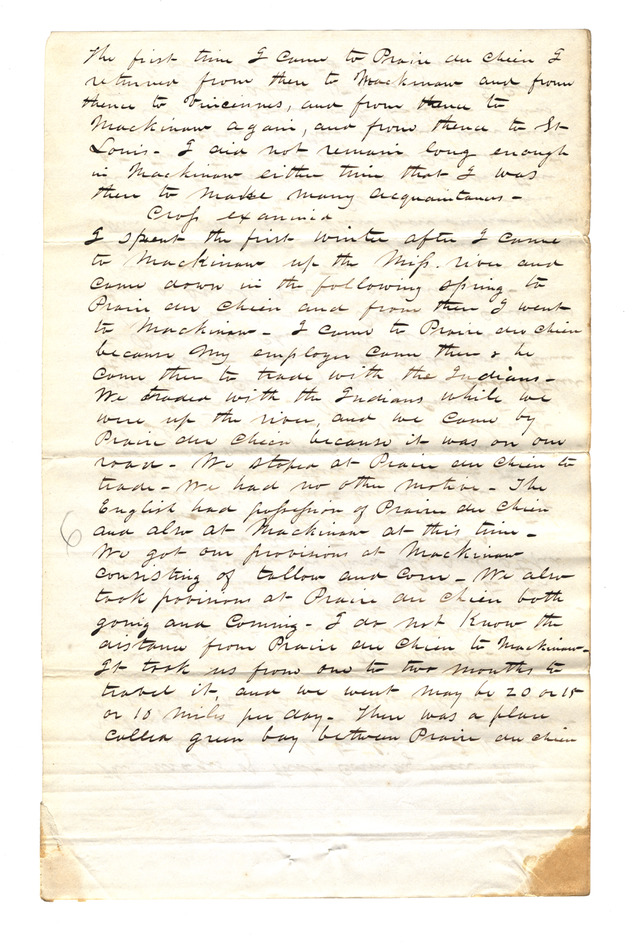 The first time I came to Prairie du Chien I
returned from there to Mackinaw and from
thence to Vincennes, and from thence to
Mackinaw again, and from thence to St
Louis - I did not remain long enough
in Mackinaw either time that I was
there to make many acquaintances -
Cross examined
I spent the first winter after I came
to Mackinaw up the Miss. river and
came down in the following spring to
Prairie du Chien and from there I went
to Mackinaw - I came to Prairie du Chien
because my employer came there & he
came there to trade with the Indians -
We traded with the Indians while we
were up the river, and we came by
Prairie du Chien because it was on our
road - We stoped at Prairie du Chien to
trade - We had no other motive - The
English had possession of Prairie du Chien
and also at Mackinaw at this time -
6
We got our provisions at Mackinaw
consisting of tallow and corn - We also
took provisions at Prairie du Chien both
going and coming - I do not know the
distance from Prairie du Chien to Mackinaw -
It took us from one to two months to
travel it, and we went may be 20 or 15
or 10 miles per day - There was a place
called green bay between Prairie du Chien